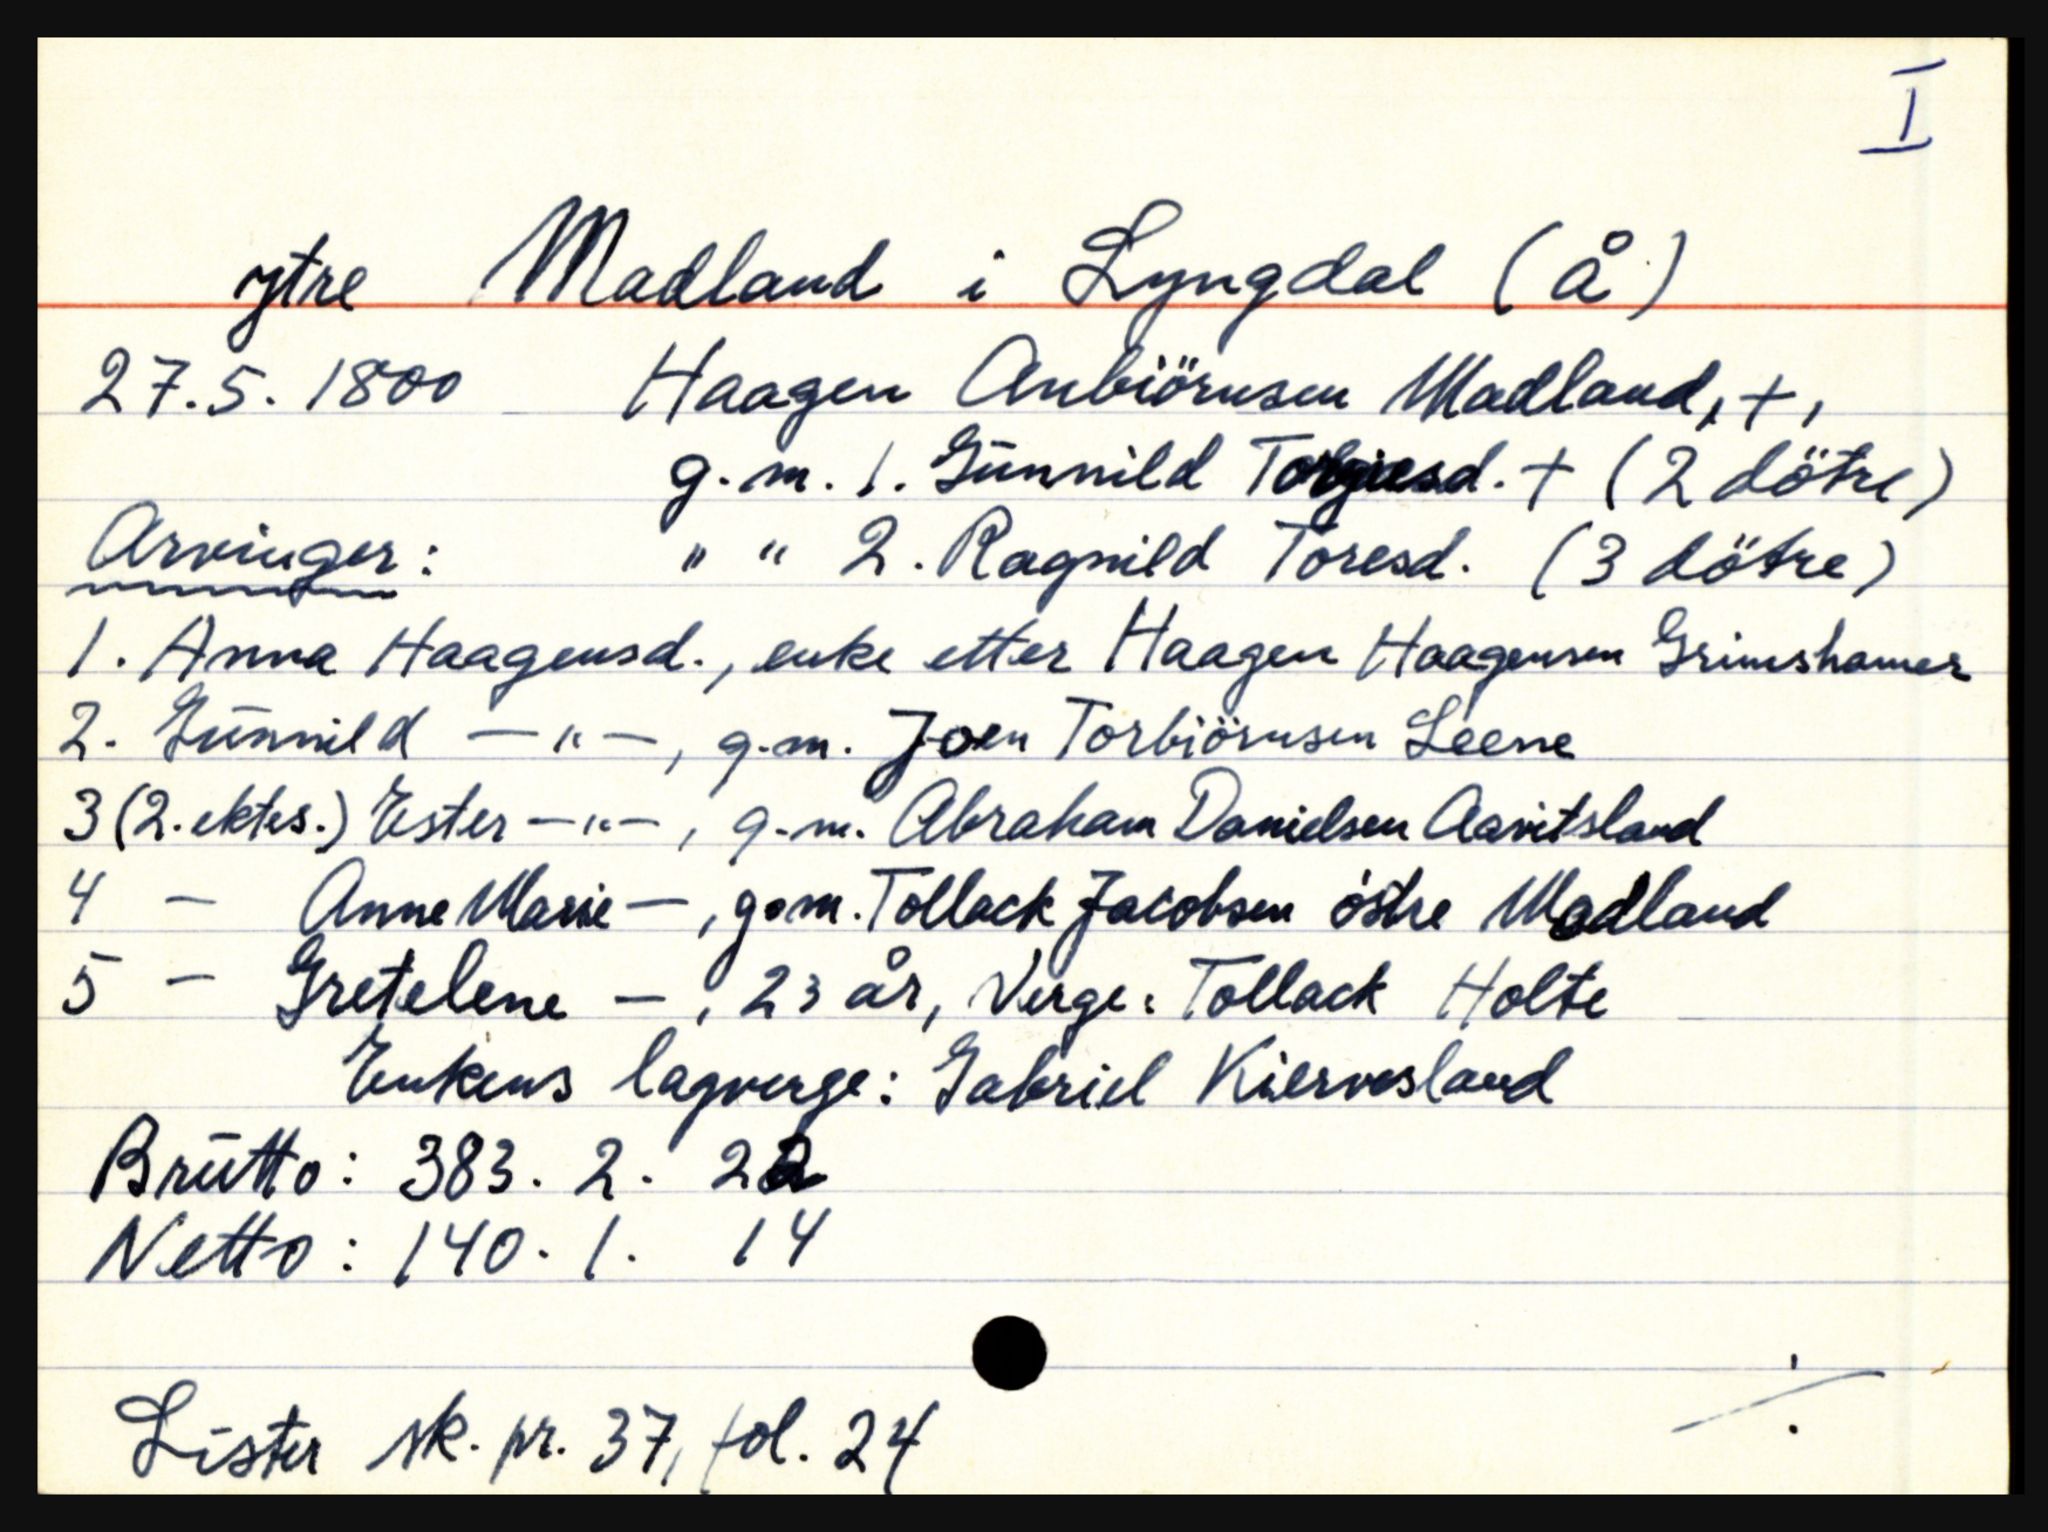 I
ytre Madland i Lyngdal (Å)
27.5.1800 Haagen Anbiörnsen Madland, +,
g.m. 1. Gunnild + (2 dötre)
Arvinger: " " 2. Ragnild Toresd. (3 dötre)
1. Anna Haagensd., enke etter Haagen Haagensen Grimshamer
2. Gunnild — " —, g.m. Joen Torbiörnsen Leene
3 (2. ektes.) Ester — " —, g.m. Abraham Danielsen Aavitsland
4 — Anne Marie —, g.m. Tollack Jacobsen östre Madland
5 — Gretelene —, 23 år, Verge: Tollack Holte
Enkens lagverge: Gabriel Kiervesland
Brutto: 383. 2. 22
Netto: 140. 1. 14
Lister sk. pr. 37, fol. 24